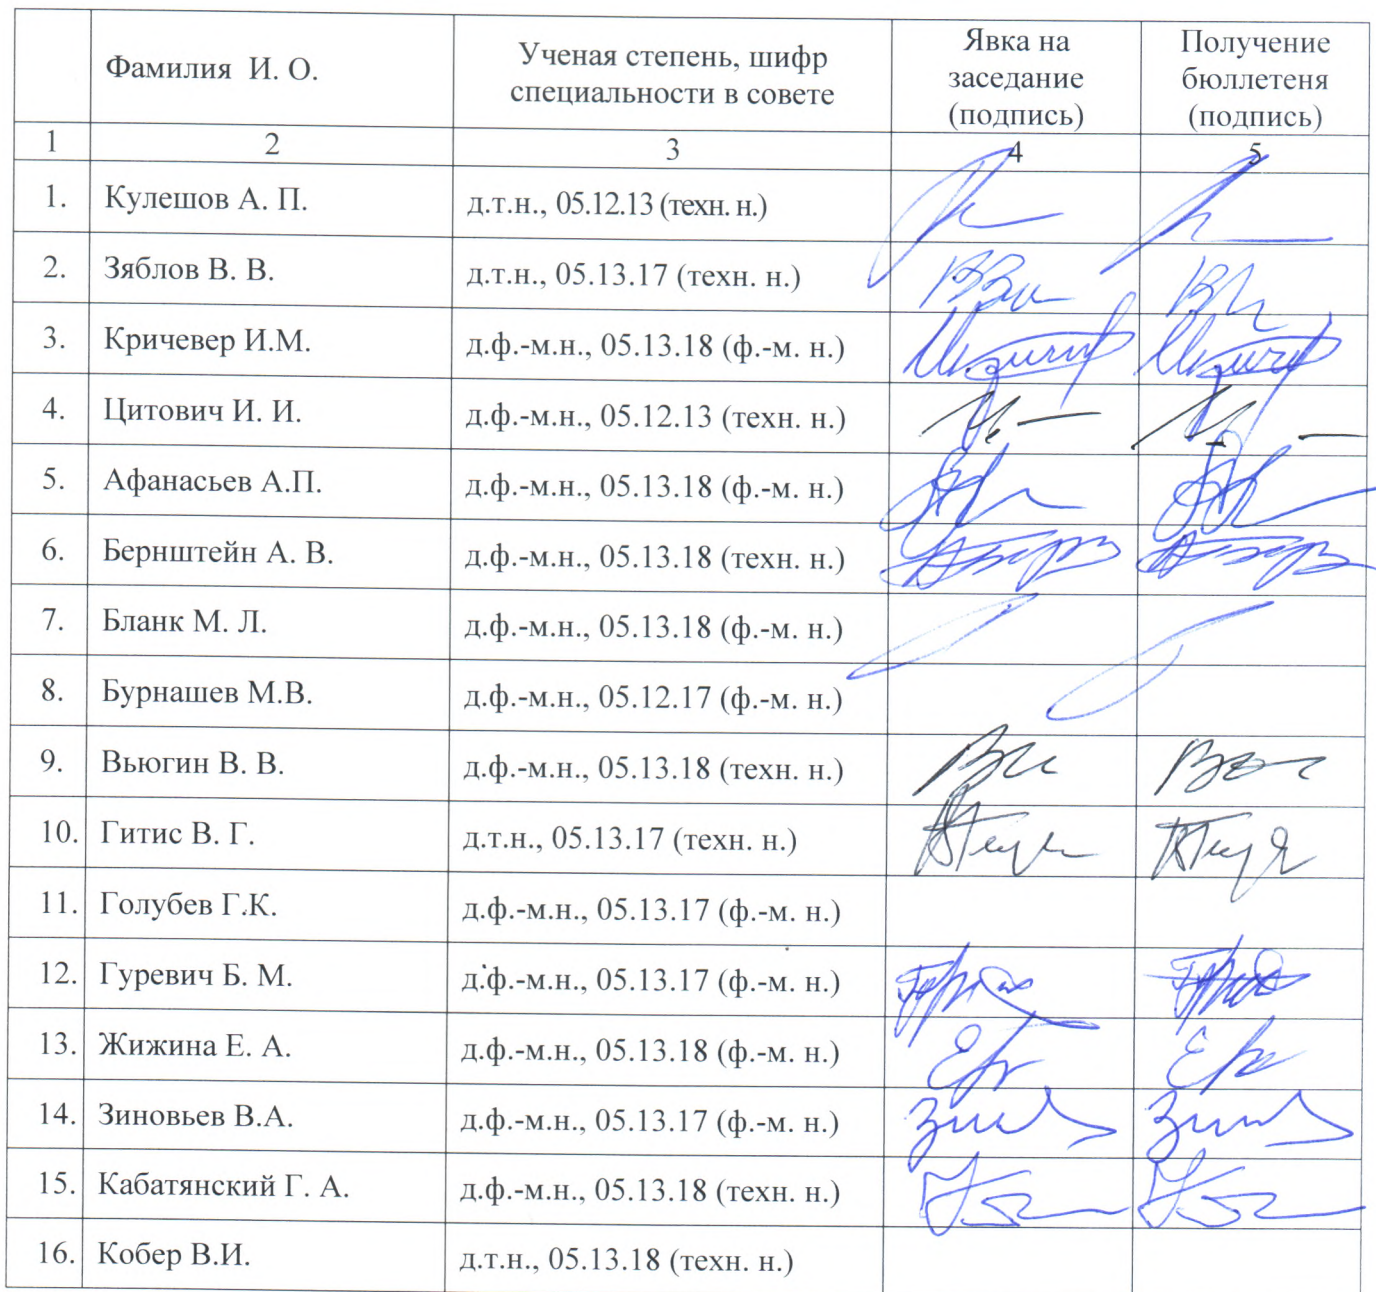 Фамилия И. О.
Ученая степень, шифр
специальности в совете
Явка на
заседание
(подпись)
Получение
бюллетеня
(подпись)
1 2 3 4 5
1. Кулешов А. П. д.т.н., 05.12.13 (техн. н.)
2. Зяблов В. В. д.т.н., 05.13.17 (техн. н.)
3. Кричевер И.М. д.ф.-м.н., 05.13.18 (ф.-м. н.)
4. Цитович И. И. д.ф.-м.н., 05.12.13 (техн. н.)
5. Афанасьев А.П. д.ф.-м.н., 05.13.18 (ф.-м. н.)
6. Бернштейн А. В. д.ф.-м.н., 05.13.18 (техн. н.)
7. Бланк М. Л. д.ф.-м.н., 05.13.18 (ф.-м. н.)
8. Бурнашев М.В. д.ф.-м.н., 05.12.17 (ф.-м. н.)
9. Вьюгин В. В. д.ф.-м.н., 05.13.18 (техн. н.)
10. Гитис В. Г. д.т.н., 05.13.17 (техн. н.)
11. Голубев Г.К. д.ф.-м.н., 05.13.17 (ф.-м. н.)
12. Гуревич Б. М. д.ф.-м.н., 05.13.17 (ф.-м. н.)
13. Жижина Е. А. д.ф.-м.н., 05.13.18 (ф.-м. н.)
14. Зиновьев В.А. д.ф.-м.н., 05.13.17 (ф.-м. н.)
15. Кабатянский Г. А. д.ф.-м.н., 05.13.18 (техн. н.)
16. Кобер В.И. д.т.н., 05.13.18 (техн. н.)